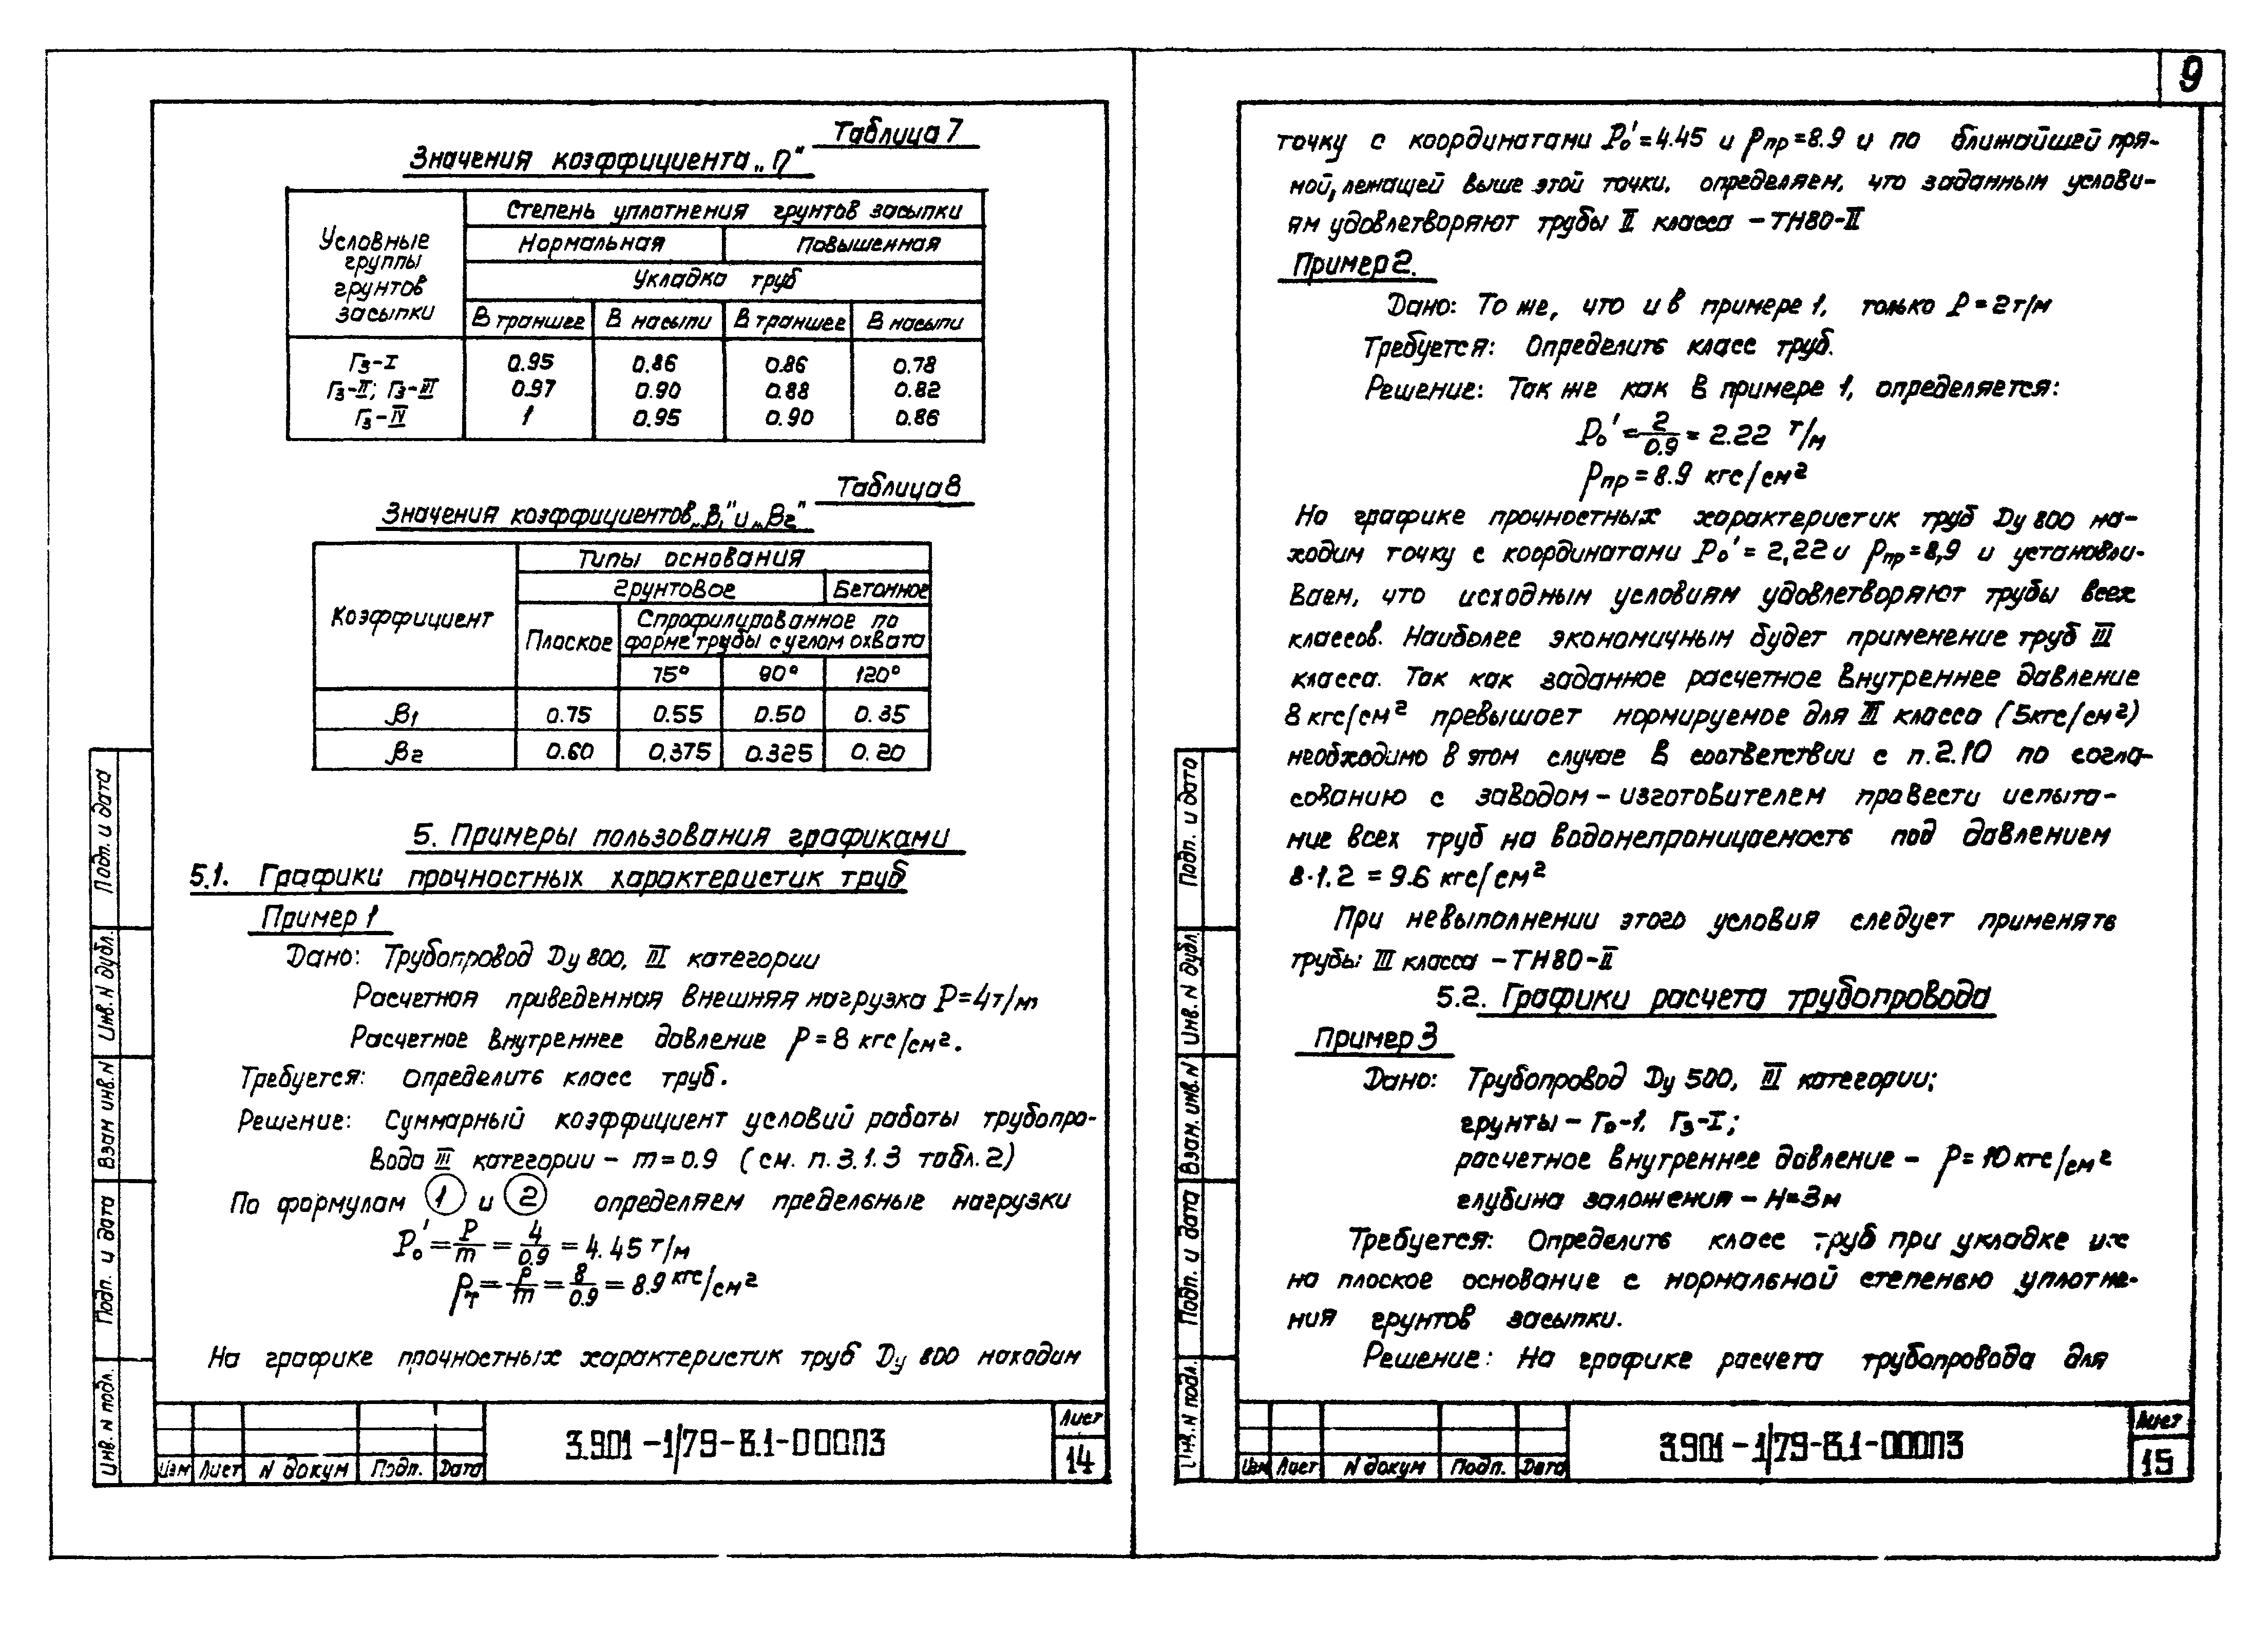 9
Таблица 7
Значения коэффициента „n"
Условные группы грунтов засыпки
Степень уплотнения грунтов засыпки
Нормальная Повышенная
Укладка труб
В траншее В насыпи В траншее В насыпи
Гз-I 0.95 0.86 0.86 0.78
Гз-II; Гз-III 0.97 0.90 0.88 0.82
Гз-IV 1 0.95 0.90 0.86
Таблица 8
Значения коэффициентов „β1" и „β2"
Коэффициент
Типы основания
Грунтовое Бетонное
Плоское
Спрофилированное по
форме трубы с углом охвата
75° 90° 120°
β1 0.75 0.55 0.50 0.35
β2 0.60 0,375 0.325 0.20
5. Примеры пользования графиками
5.1. Графики прочностных характеристик труб
Пример 1
Дано: Трубопровод Ду 800, III категории
Расчетная приведенная внешняя нагрузка P=4т/м,
Расчетное внутреннее давление p=8 кгс/см2.
Требуется: Определить класс труб.
Решение: Суммарный коэффициент условий работы трубопро-
вода III категории - m=0.9 (см. п. 3.1.3 табл. 2)
По формулам 1 и 2 определяем предельные нагрузки
P₀' = P/m = 4/0.9 = 4.45 т/м
pт = p/m = 8/0.9 = 8.9 кгс/см2
На графике прочностных характеристик труб Ду 800 находим
3.901-1/79-В.1-000ПЗ
Лист
14
Изм Лист N докум Подп. Дата
Подп. и дата
Инв. N дубл.
Взам инв. N
Подп. и дата
Инв. N подл.
точку с координатами P₀'=4.45 и pпр=8.9 и по ближайшей пря-
мой, лежащей выше этой точки, определяем, что заданным услови-
ям удовлетворяют трубы II класса - ТН80-II
Пример 2.
Дано: То же, что и в примере 1, только P=2т/м
Требуется: Определить класс труб.
Решение: Так же как в примере 1, определяется:
P₀' = 2/0.9 = 2.22 т/м
pпр = 8.9 кгс/см2
На графике прочностных характеристик труб Ду 800 на-
ходим точку с координатами P₀'=2,22 и pпр=8,9 и установли-
ваем, что исходным условиям удовлетворяют трубы всех
классов. Наиболее экономичным будет применение труб III
класса. Так как заданное расчетное внутреннее давление
8 кгс/см2 превышает нормируемое для III класса (5кгс/см2)
необходимо в этом случае в соответствии с п. 2.10 по согла-
сованию с заводом-изготовителем провести испыта-
ние всех труб на водонепроницаемость под давлением
8·1.2 = 9.6 кгс/см2
При невыполнении этого условия следует применять
трубы III класса - ТН80-II
5.2. Графики расчета трубопровода
Пример 3
Дано: Трубопровод Ду 500, III категории;
грунты - Го-1, Гз-I;
расчетное внутреннее давление - p=10кгс/см2
глубина заложения - H=3м
Требуется: Определить класс труб при укладке их
на плоское основание с нормальной степенью уплотне-
ния грунтов засыпки.
Решение: На графике расчета трубопровода для
3.901-1/79-В.1-000ПЗ
Лист
15
Изм Лист N докум Подп. Дата
Подп. и дата
Инв. N дубл.
Взам. инв. N
Подп. и дата
Инв. N подл.